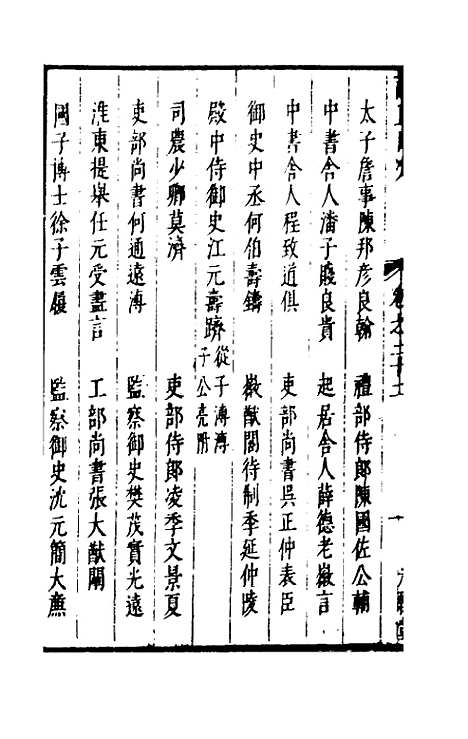 太子詹事陳邦彥良翰　禮部侍郎陳國佐公輔
中書舍人潘子賤良貴　起居舍人薛德老徽言
中書舍人程致道俱　吏部尚書吳正仲表臣
御史中丞何伯壽鑄　徽猷閣待制季延仲陵
殿中侍御史江元壽躋從子溥溥子公亮冊
司農少卿莫濟　吏部侍郎凌季文景夏
吏部尚書何通遠溥　監察御史樊茂實光遠
淮東提舉任元受盡言　工部尚書張大猷闡
國子博士徐子雲履　監察御史沈元簡大廉